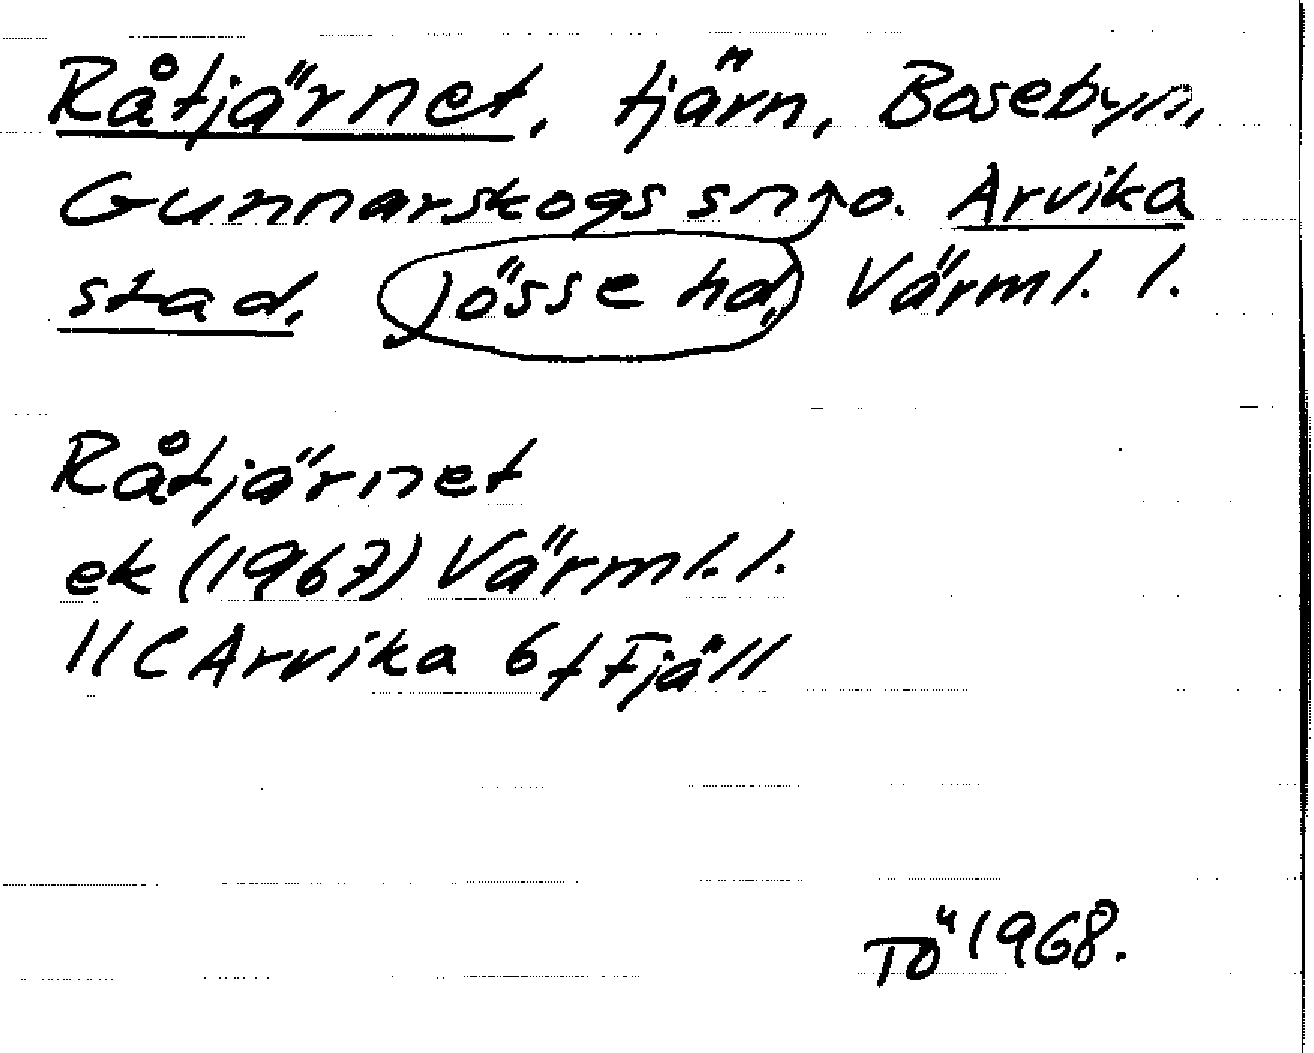 Råtjärnet, tjärn, Bosebyn,
Gunnarskogs sngo. Arvika
stad, Jösse hd, Värml. l.
Råtjärnet
ek (1967) Värml. l.
11C Arvika 6f Fjäll
TÖ 1968.